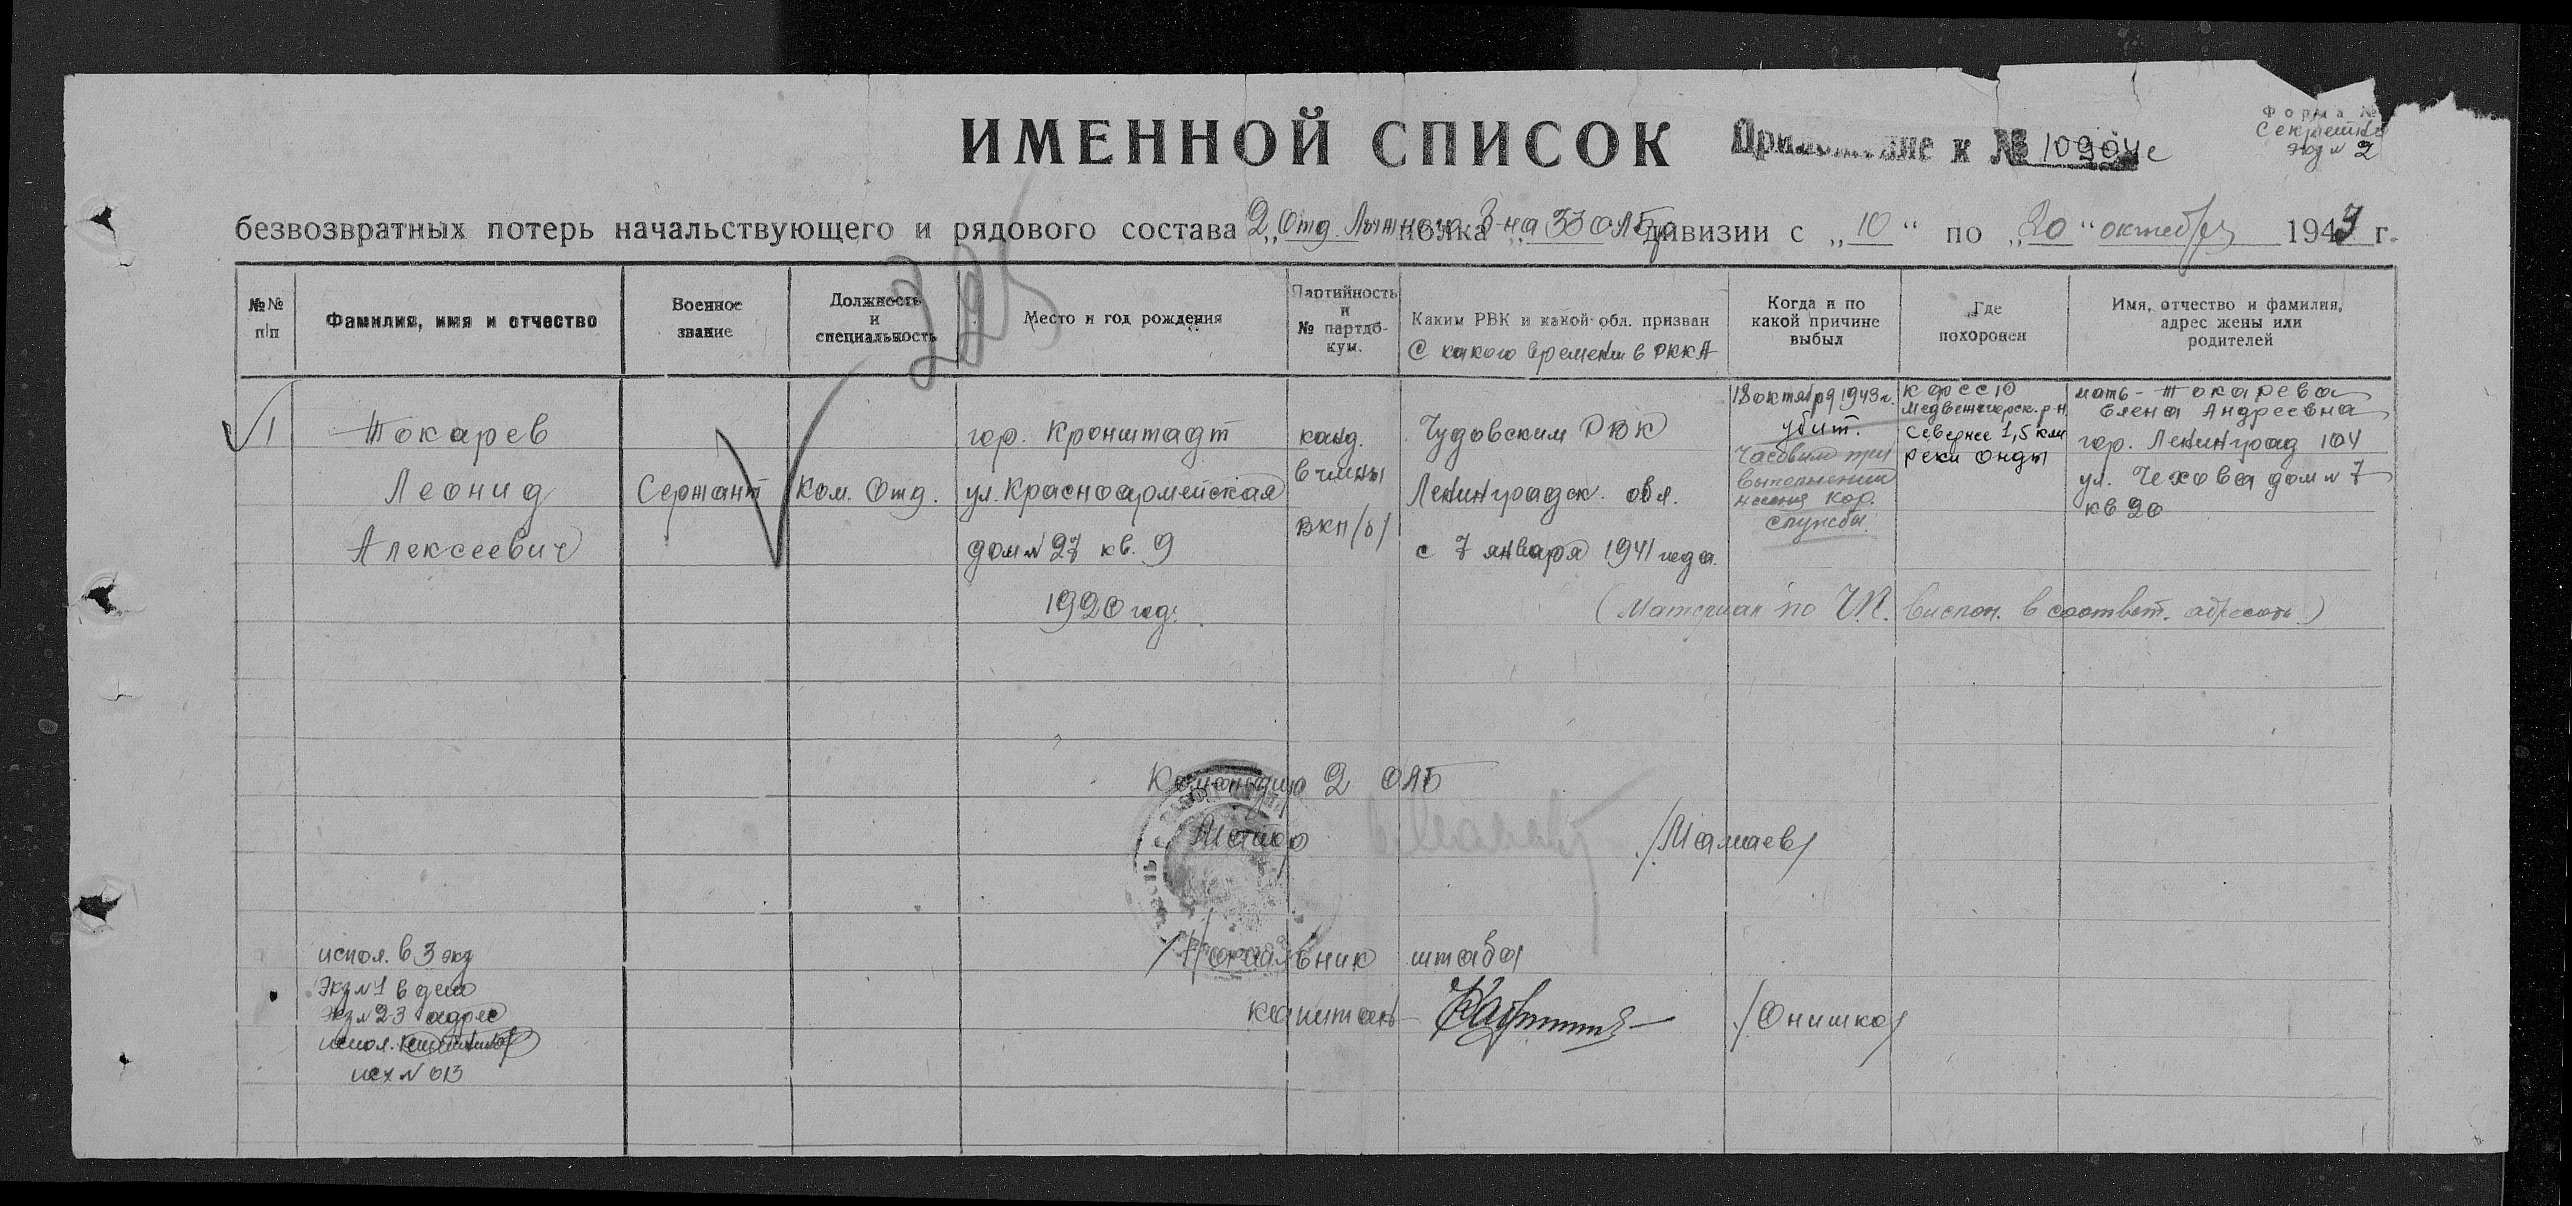 Форма №
Секретно
экз № 2
ИМЕННОЙ СПИСОК
к № 10904с
безвозвратных потерь начальствующего и рядового состава 2 „Отд. Лыжного полка Б-на 33 ОЛБр дивизии с „10“ по „20“ октября 1943 г.
№№ п/п
Фамилия, имя и отчество
Военное звание
Должность и специальность
Место и год рождения
Партийность и № партдокум.
Каким РВК и какой обл. призван
С какого времени в РККА
Когда и по какой причине выбыл
Где похоронен
Имя, отчество и фамилия, адрес жены или родителей
1
Токарев
Леонид
Алексеевич
Сержант
Ком. Отд.
гор. Кронштадт
ул. Красноармейская
дом № 27 кв. 9
1920 год.
канд.
в члены
ВКП/б/
Чудовским РВК
Ленинградск. обл.
с 7 января 1941 года.
18 октября 1943 г.
убит.
Часовым при
выполнении
несения кар.
службы.
КФССР
Медвежьегорск. р-н
Севернее 1,5 км
реки Онды
мать - Токарева
Елена Андреевна
гор. Ленинград 104
ул. Чехова дом № 7
кв 20
(Материал по Ч.П. в соответ. адресат.)
Командир 2 ОЛБ
Майор
/Мамаев/
/Начальник штаба
капитан
/Онишко/
испол. в 3 экз
Экз № 1 в дело
Экз № 2-3 адрес
испол.
исх № 013